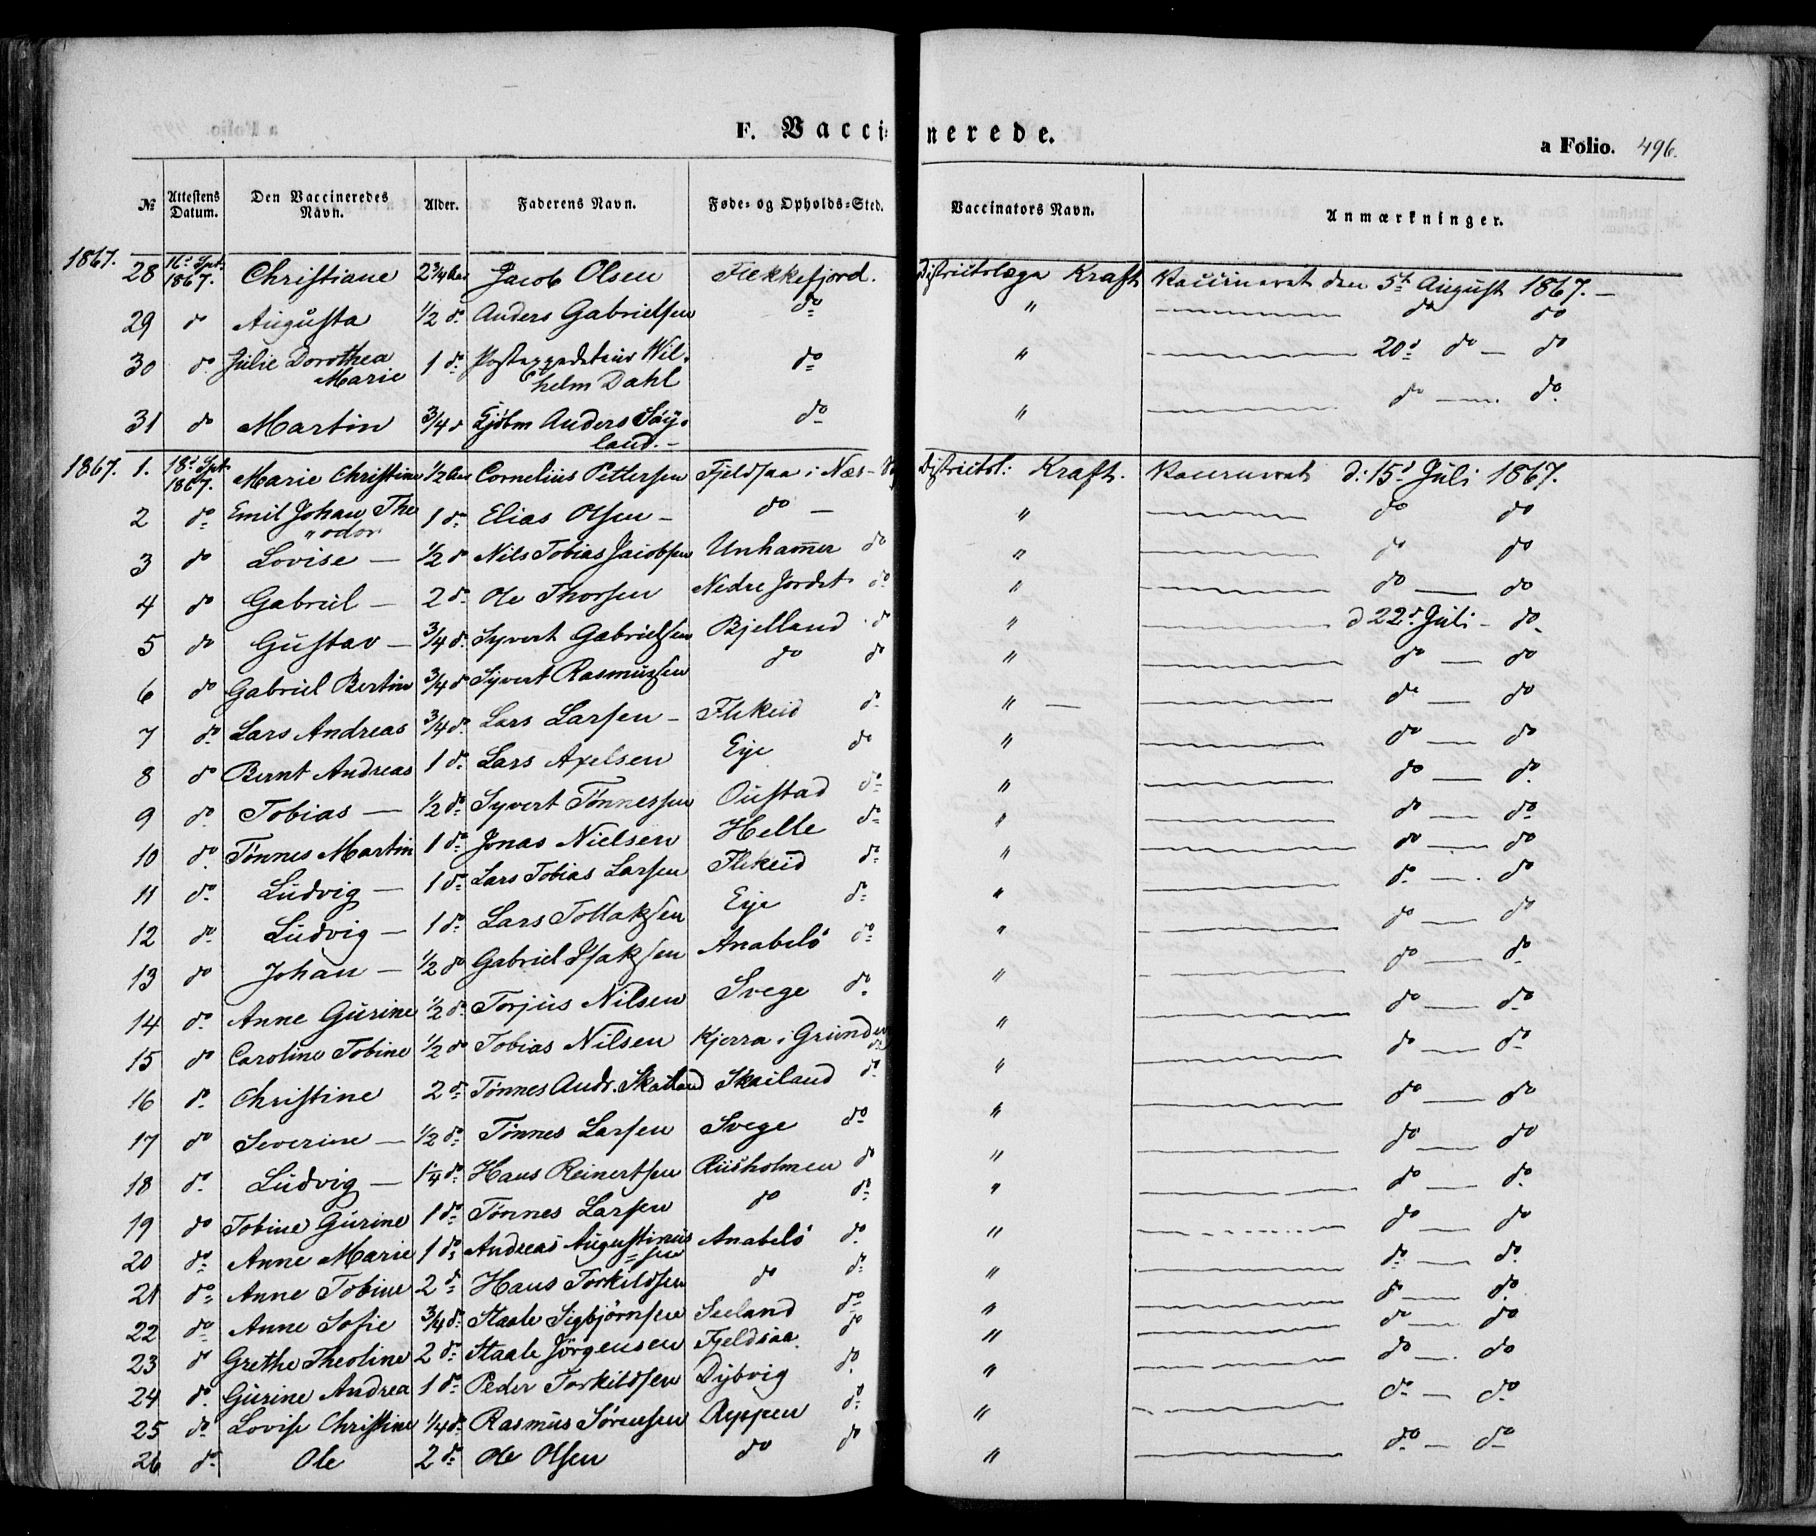 F. Vaccinerede.
a Folio. 496.
№ | Attestens Datum. | Den Vaccineredes Navn. | Alder. | Faderens Navn. | Føde- og Opholds-Sted. | Vaccinators Navn. | Anmærkninger.
1867. 28 | 16d Spt. 1867. | Christiane | 2 3/4 Aar | Jacob Olsen | Flekkefjord. | Districtslæge Kraft | Vaccineret den 5t August 1867. –
29 | do | Augusta | 1/2 do | Anders Gabrielsen | do | " | do do
30 | do | Julie Dorothea Marie | 1 do | Postexpediteur Wilhelm Dahl | do | " | 20d do – do
31 | do | Martin | 3/4 do | Anders Søyland. – | do | " | do – do
1867. 1. | 18d Spt. 1867. | Marie Christine | 1/2 Aar | Cornelius Pettersen | Fjeldsaa i Næs – | Districtsl: Kraft. | Vaccineret d: 15d Juli 1867.
2 | do | Emil Johan Theodor | 1 do | Elias Olsen – | do – | " | do do
3 | do | Lovise – | 1/2 do | Nils Tobias Jacobsen | Unhamer do | " | do do
4 | do | Gabriel – | 2 do | Ole Thorsen | Nedre Jordet do | " | do – do
5 | do | Gustav – | 3/4 do | Syvert Gabrielsen | Bjelland do | " | d 22d Juli – do
6 | do | Gabriel Bertin | 3/4 do | Syvert Rasmussen | do do | " | do – do
7 | do | Lars Andreas | 3/4 do | Lars Larsen – | Flikeid do | " – | do – do
8 | do | Bernt Andreas | 1 do | Lars Axelsen | Eye do | " | do – do
9 | do | Tobias – | 1/2 do | Syvert Tønnessen | Oustad do | " | do – do
10 | do | Tønnes Martin | 1 do | Jonas Nielsen | Helle do | " | do – do
11 | do | Ludvig – | 1 do | Lars Tobias Larsen | Flikeid do | " | do – do
12 | do | Ludvig – | 1 do | Lars Tollaksen | Eye do | " | do – do
13 | do | Johan – | 1/2 do | Gabriel Isaksen | Anabelö do | " | do – do
14 | do | Anne Gurine | 1/2 do | Torjus Nilsen | Svege do | " | do – do
15 | do | Caroline Tobine | 1/2 do | Tobias Nilsen | Kjerra i Grunden do | " | do – do
16 | do | Christine | 2 do | Tønnes Andr. Skailand | Skailand do | " | do – do
17 | do | Severine – | 1/2 do | Tønnes Larsen | Svege do | " | do – do
18 | do | Ludvig – | 1/4 do | Hans Reinertsen | Riisholmen do | " | do – do
19 | do | Tobine Gurine | 1 do | Tønnes Larsen | do do | " | do – do
20 | do | Anne Marie | 1 do | Andreas Augustinussen | Anabelö do | " | do – do
21 | do | Anne Tobine | 2 do | Hans Torkildsen | do do | " | do – do
22 | do | Anne Sofie | 3/4 do | Staale Sigbjørnsen | Seeland do | " | do – do
23 | do | Grethe Theoline | 2 do | Staale Jørgensen | Fjeldsaa do | " | do – do
24 | do | Gurine Andrea | 1 do | Peder Torkildsen | Dybvig do | " | do – do
25 | do | Lovise Christine | 1/4 do | Rasmus Sörensen | Ryppen do | " | do – do
26 | do | Ole | 2 do | Ole Olsen | do do | " | do – do